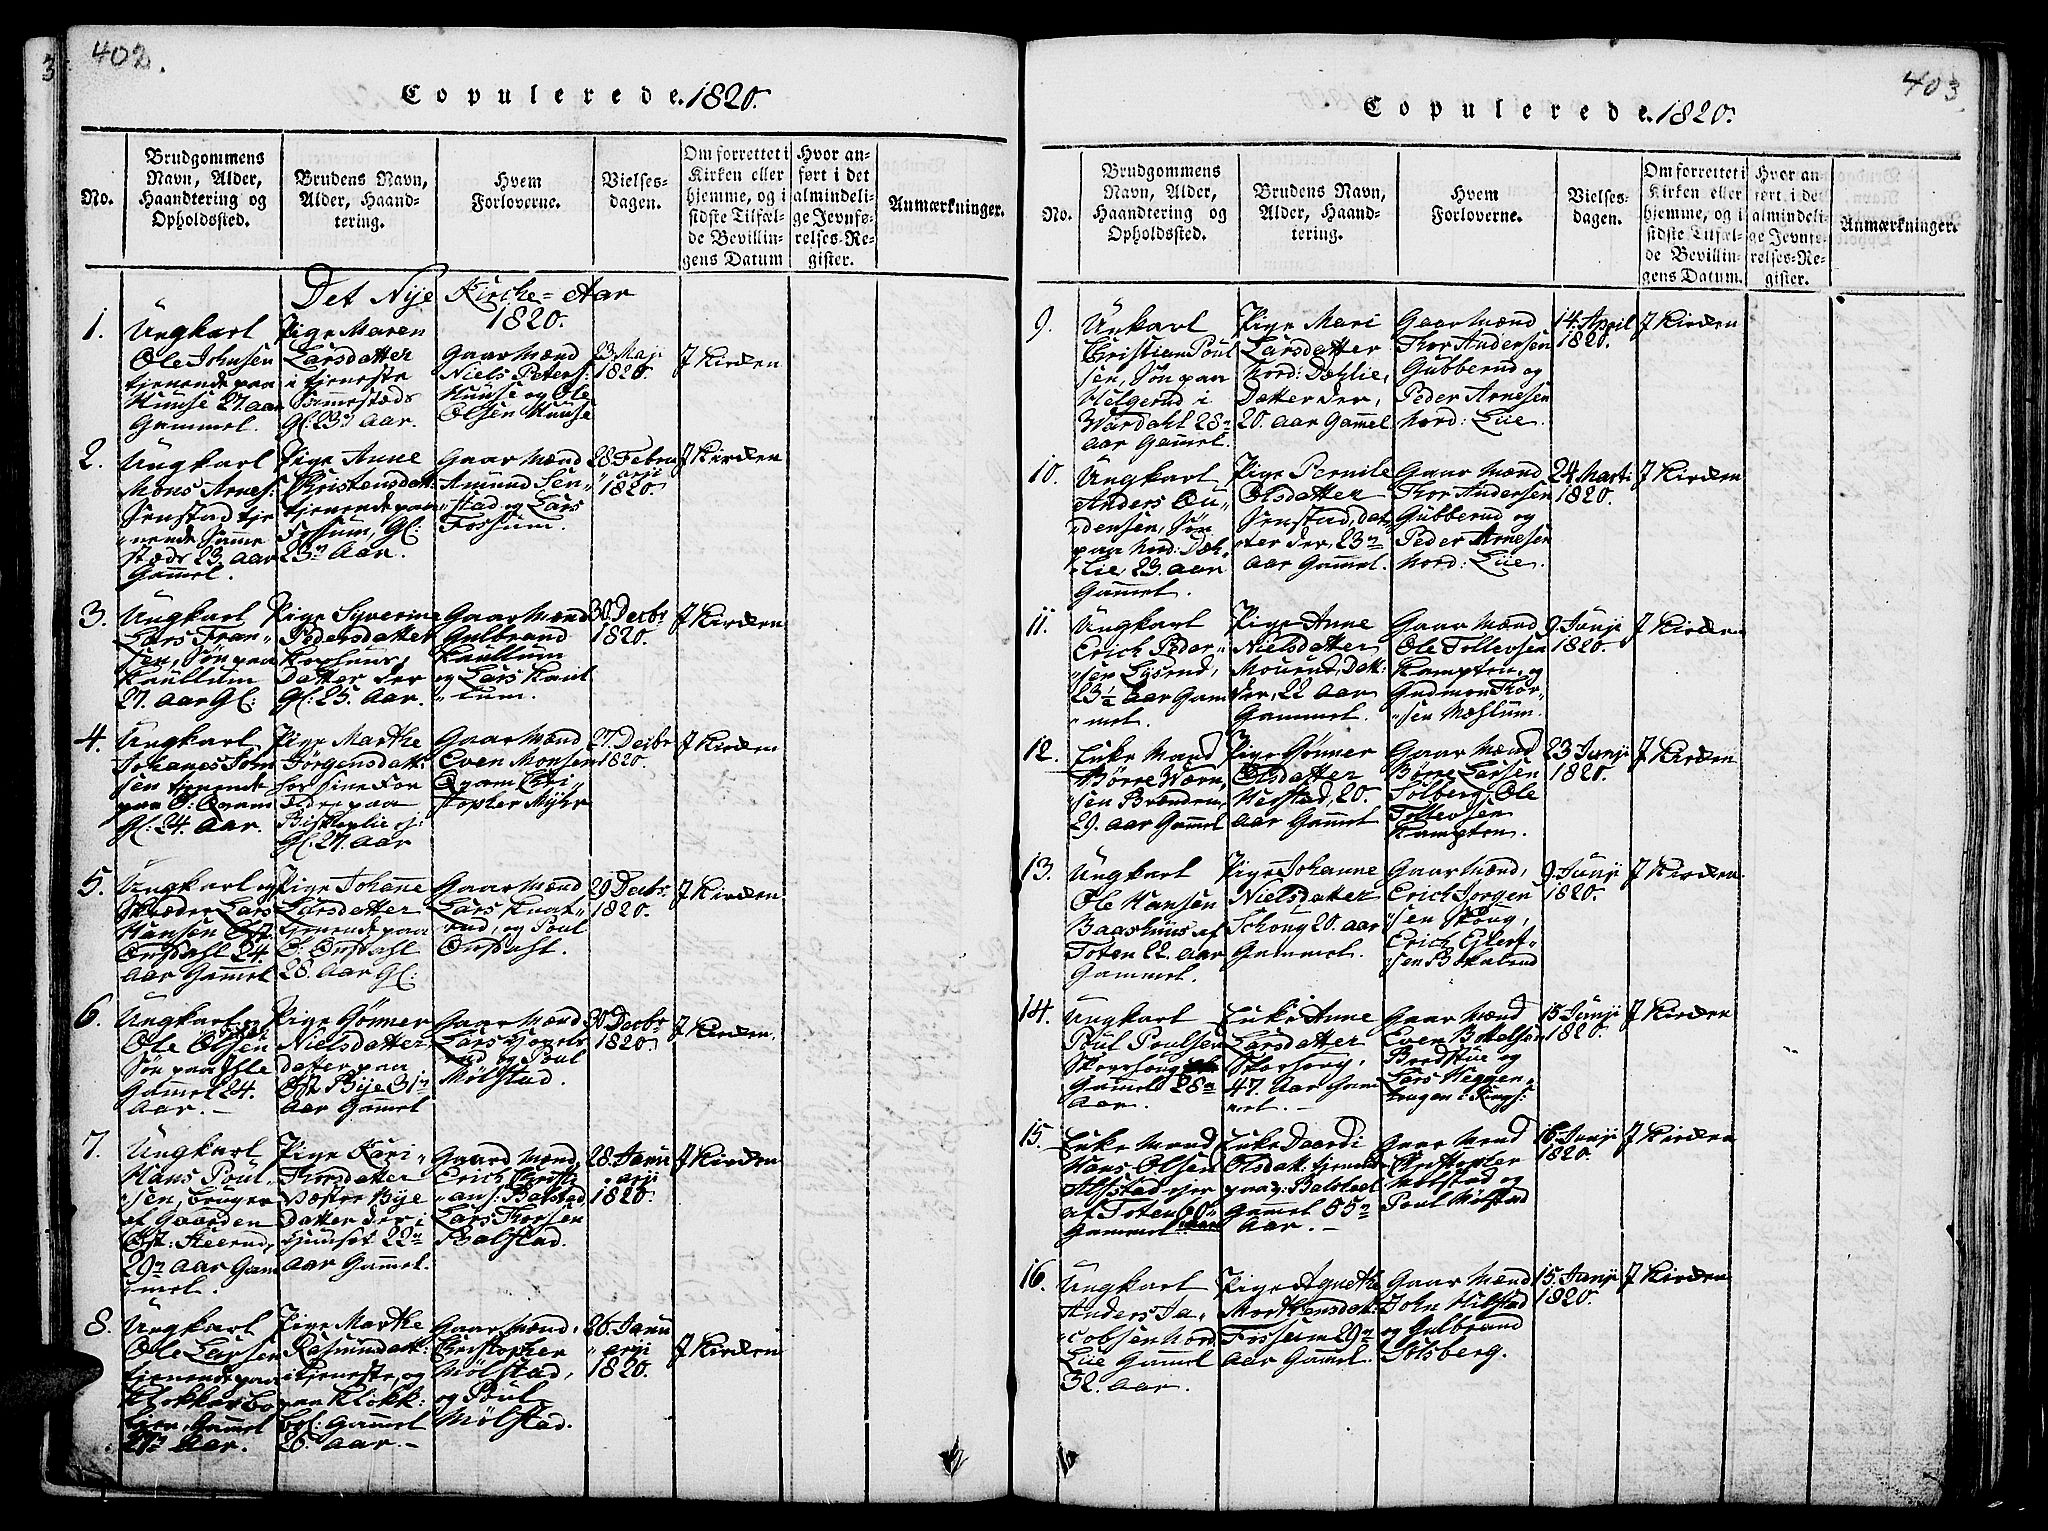 402.
Copulerede. 1820.
No.
Brudgommens
Navn, Alder,
Haandtering og
Opholdssted.
Brudens Navn,
Alder, Haand-
tering.
Hvem
Forloverne.
Vielses-
dagen.
Om forrettet i
Kirken eller
hjemme, og i
sidste Tilfæl-
de Bevillin-
gens Datum
Hvor an-
ført i det
almindeli-
ge Jevnfø-
relses-Re-
gister.
Anmærkninger.
Det Nye Kirche-Aar
1820.
1.
Ungkarl
Ole Johnsen
tjenende paa
Huuse 27. aar
Gammel.
Pige Maren
Larsdatter
i tjeneste
Sammestæds
Gl: 23 Aar.
Gaar Mænd
Niels Peters:
Huuse og Ole
Olsen Huuse
23 Maji
1820.
J Kirken
2.
Ungkarl
Mons Arnes:
Senstad tje
nende Samme
stæds 23. aar
Gammel.
Pige Anne
Christensdatt:
tjenende paa
Fossum, Gl:
23 Aar.
Gaar Mænd
Amund Sen-
stad og Lars
Fossum.
28 Febru
arji
1820.
J Kirken
3.
Ungkarl
Lars Fran-
sen, Søn paa
Kaullum
27. Aar Gl:
Pige Syverine
Pedersdatter
Datter der
Gl: 25. Aar.
Gaar Mænd
Gulbrand
Kaullum
og Lars Kaul
lum.
30. Decbr
1820.
J Kirken
4.
Ungkarl
Johanes Tom
sen tjenende
paa Ø: Qvam
Gl: 24. Aar.
Pige Marthe
Jørgensdatt:
hos sine For
Eldre paa
Gl: 27. Aar
Gaar Mænd
Even Monsen
Qvam Chri-
stopher Myhr
27. Decbr
1820.
J Kirken
5.
Ungkarl og
Skræder Lars
Hansen Øst.
24.
Aar Gammel
Pige Johane
Larsdatter
tjenende paa
28. Aar Gl:
Gaar Mænd
Lars
rud, og Poul
29 Decbr.
1820.
J Kirken
6.
Ungkarl
Ole Olsen
Søn paa
Gammel 24.
Aar.
Pige Gønner
Nielsdatter,
datter paa
Øst Bye 31
Aar Gammel
Gaar Mænd
Lars
rud og Poul
Mølstad.
30. Decbr
1820.
J Kirken.
7.
Ungkarl
Hans Poul-
sen, bruger
af Gaarden
Øst:
29 Aar Gam
mel.
Pige Kari
Thorsdatter
Vestre Bye
Datter der i
Huuset 22
Aar Gammel.
Gaard Mænd,
Erich Christi
ans: Balstad,
Lars Thorsen
Balstad.
28. Janu
arji
1820.
J Kirken
8.
Ungkarl
Ole Larsen
tjenende paa
Klokkerbo
Gammel
27 Aar.
Pige Marthe
Rasmusdatt:
i tjeneste, og
paa Klokk:
bol: Gammel
26. Aar.
Gaar Mænd,
Christopher
Mølstad,
og Poul
Mølstad.
26. Janu
arji
1820.
J Kirken
403.
Copulerede. 1820.
No.
Brudgommens
Navn, Alder,
Haandtering og
Opholdssted.
Brudens Navn,
Alder, Haand-
tering.
Hvem
Forloverne.
Vielses-
dagen.
Om forrettet i
Kirken eller
hjemme, og i
sidste Tilfæl-
de Bevillin-
gens Datum.
Hvor an-
ført i det
almindeli-
ge Jevnfø-
relses-Re-
gister.
Anmærkninger.
9.
Unkarl
Christian Poul
sen, Søn paa
Helgerud i
Wardahl 28
aar Gammel.
Pige Mari
Larsdatter
Nord: Dæhlie,
Datter der,
20. Aar Gamel
Gaar Mænd
Thor Andersen
Gubberud og
Peder Arnesen
Nord: Lüe.
14. April
1820.
J Kirken
10.
Ungkarl
Anders Ou-
densen, Søn
paa Nord: Dæh-
lie, 23. Aar
Gammel.
Pige Pernile
Olsdatter
Senstad, dat-
ter der, 23
Aar Gammel.
Gaar Mænd
Thor Andersen
Gubberud og
Peder Arnesen
Nord: Lüe.
24. Marti
1820.
J Kirken
11.
Ungkarl
Erich Peder-
sen Lysrud,
23½ Aar Gam
mel.
Pige Anne
Nielsdatter
Mourud, Datt:
der, 22 Aar
Gammel.
Gaar Mænd
Ole Tollevsen
og
Gudmon Thor-
sen Mæhlum.
9. Junji
1820.
J Kirken
12.
Enke Mand
Børre
sen
29. Aar Gammel
Pige Gønner
Olsdatter
20.
Aar Gammel
Gaar Mænd
Børre Larsen
Solberg, Ole
Tollevsen
23 Junji
1820.
J Kirken
13.
Ungkarl
Ole Hansen
Baashuus af
Toten 22. Aar
Gammel.
Pige Johanne
Nielsdatter
Schoug 20. aar
Gammel.
Gaar Mænd,
Erich Jørgen
sen Skoug,
Erich
sen
9. Junji
1820.
J Kirken.
14.
Ungkarl
Poul Poulsen
Gammel 28
Aar.
Enke Anne
Larsdatter
47. Aar Gam
mel.
Gaar Mænd
Even
og
Lars
15 Junji
1820.
J Kirken
15.
Enke Mand
Hans Olsen
Alfstad ejer
af Toten 60
Gammel
Enke Taardi
Olsdatt: tjenende
paa : Balstad
Gammel 55
Aar.
Gaar Mænd
Christopher
Mølstad og
Poul Mølstad
16. Junji
1820.
J Kirken
16.
Ungkarl
Anders Ja-
cobsen Nord
Lüe Gammel
32. Aar.
Pige Agnethe
Morthensdatt:
Fossum 29
Aar Gammel.
Gaar Mænd
John Hilstad
og Gulbrand
Solsberg.
15. Junji
1820.
J Kirken